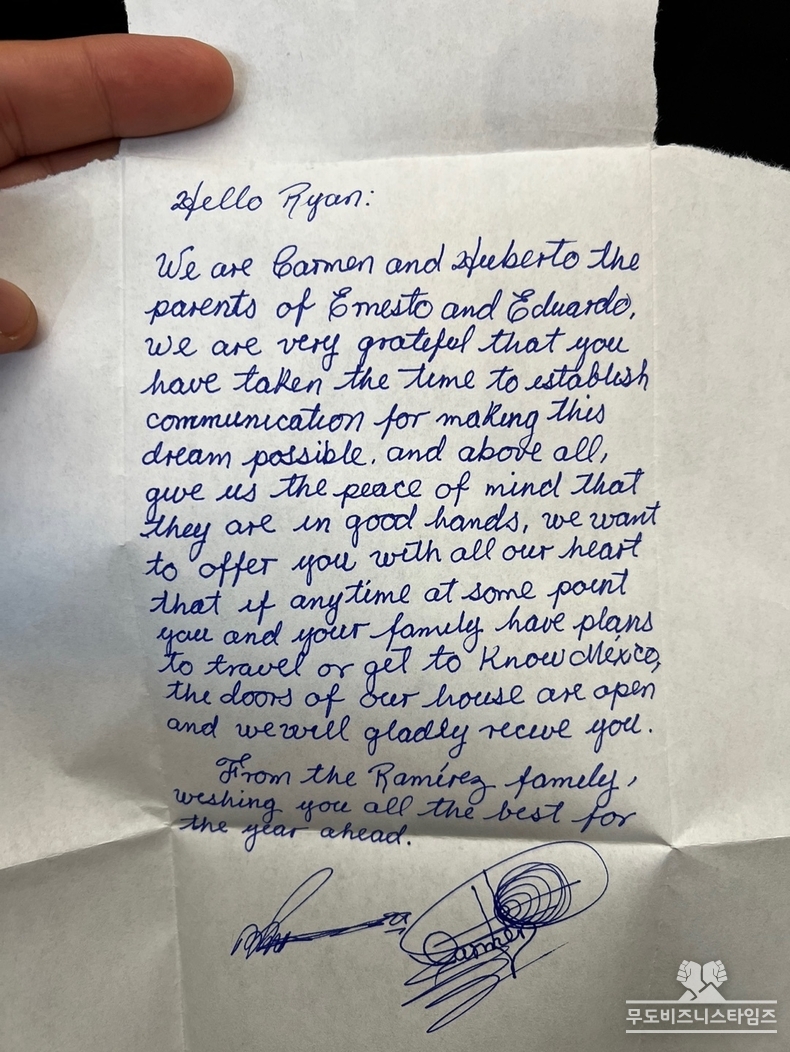 Hello Ryan:
We are Carmen and Huberto the
parents of Ernesto and Eduardo,
we are very grateful that you
have taken the time to establish
communication for making this
dream possible, and above all,
give us the peace of mind that
they are in good hands, we want
to offer you with all our heart
that if anytime at some point
you and your family have plans
to travel or get to Know México,
the doors of our house are open
and we will gladly recive you.
From the Ramírez family,
wishing you all the best for
the year ahead.
Carmen
무도비즈니스타임즈